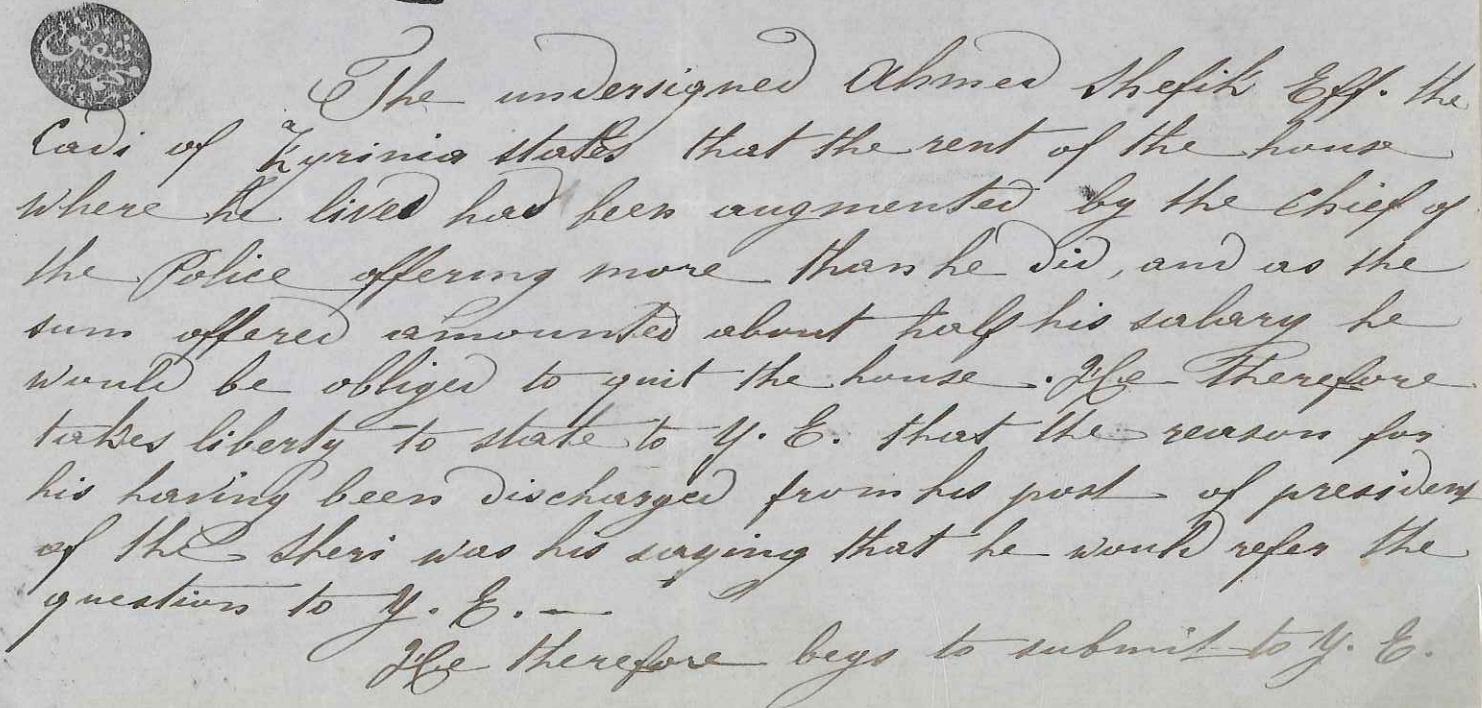 The undersigned Ahmed Shefik Eff. the
Cadi of Kyrinia states that the rent of the house
where he lived had been augmented by the Chief of
the Police offering more than he did, and as the
sum offered amounted about half his salary he
would be obliged to quit the house. He therefore
takes liberty to state to Y. E. that the reason for
his having been discharged from his post of president
of the Sheri was his saying that he would refer the
question to Y. E. —
He therefore begs to submit to Y. E.